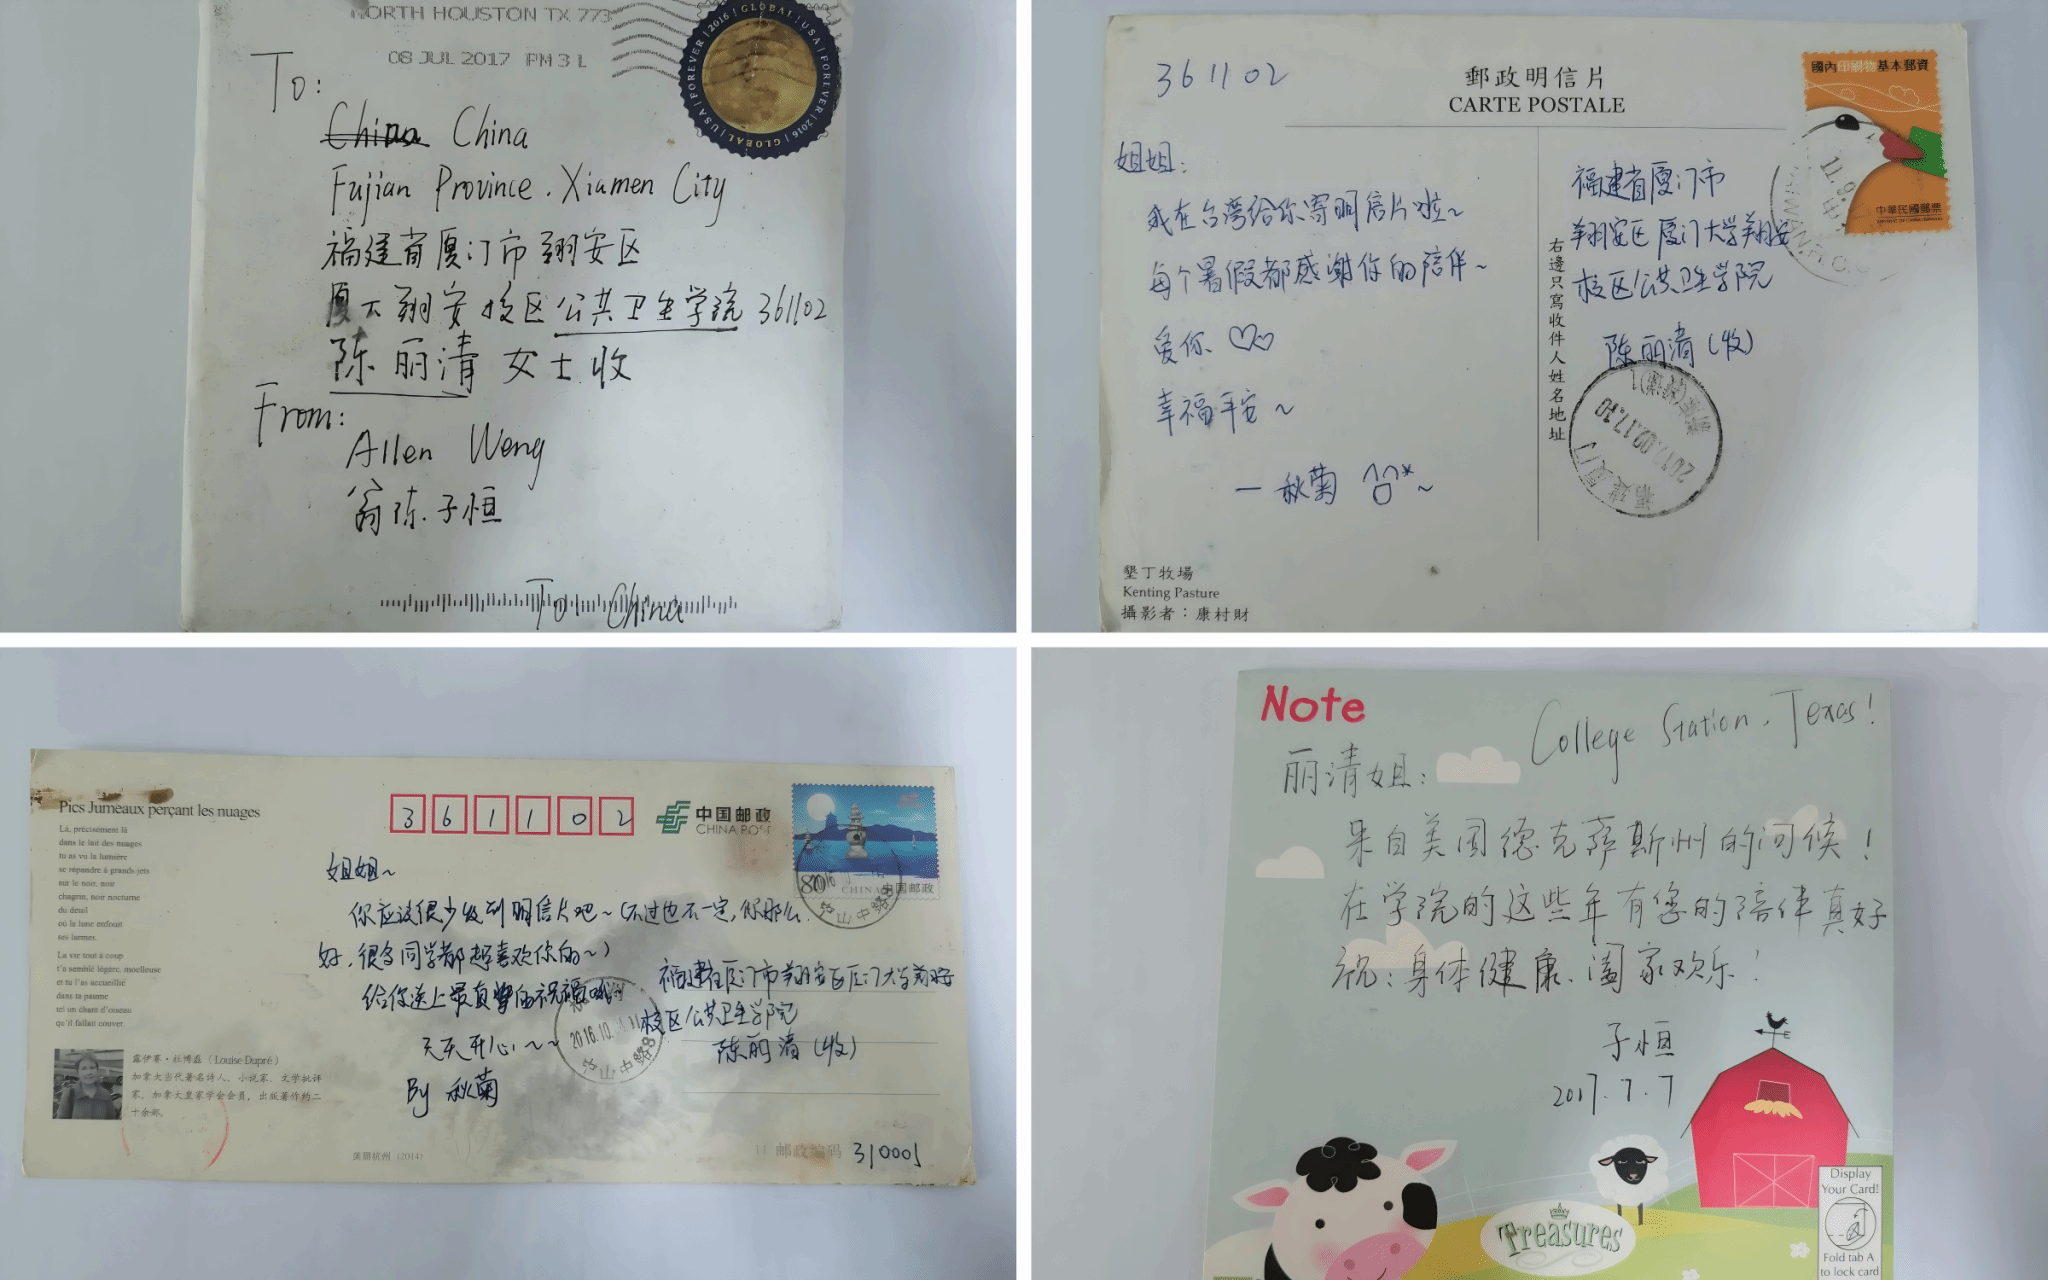 NORTH HOUSTON TX 773
08 JUL 2017 PM 3 L
GLOBAL | USA | FOREVER | 2016 | GLOBAL | USA | FOREVER | 2016
To:
China China
Fujian Province. Xiamen City
福建省厦门市翔安区
厦大翔安校区公共卫生学院 361102
陈丽清 女士收
From:
Allen Weng
翁陈子恒
To: China
361102
郵政明信片
CARTE POSTALE
國內印刷物基本郵資
中華民國郵票
姐姐:
我在台湾给你寄明信片啦~
每个暑假都感谢你的陪伴~
爱你
幸福平安~
— 秋菊
福建省厦门市
翔安区厦门大学翔安
校区公共卫生学院
陈丽清(收)
右邊只寫收件人姓名地址
墾丁牧場
Kenting Pasture
攝影者:康村財
Pics Jumeaux perçant les nuages
Là, précisément là
dans le lait des nuages
tu as vu la lumière
se répandre à grands jets
sur le noir, noir
chagrin, noir nocturne
du deuil
où la lune enfouit
ses larmes.
La vie tout à coup
t'a semblé légère, moelleuse
et tu l'as accueillie
dans ta paume
tel un chant d'oiseau
qu'il fallait couver.
露伊寒·杜博蕊(Louise Dupré)
加拿大当代著名诗人、小说家、文学批评
家,加拿大皇家学会会员,出版著作约二
十余部。
361102
中国邮政
CHINA POST
姐姐~
你应该很少收到明信片吧~(不过也不一定,你那么
好,很多同学都超喜欢你的~)
给你送上最真挚的祝福哦~
天天开心~~
By 秋菊
福建省厦门市翔安区厦门大学翔安
校区公共卫生学院
陈丽清(收)
2016.10
邮政编码 310005
Note
College Station, Texas!
丽清姐:
来自美国德克萨斯州的问候!
在学院的这些年有您的陪伴真好
祝:身体健康、阖家欢乐!
子恒
2017.7.7
Treasures
Display
Your Card!
Fold tab A
to lock card